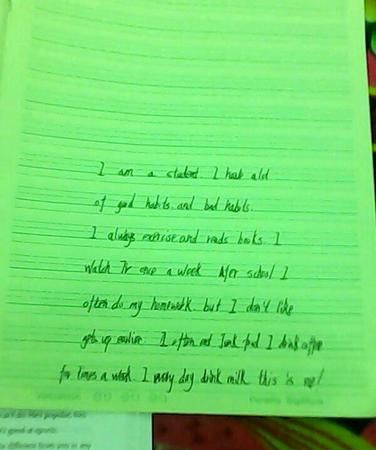 I am a student. I have alot
of good habits and bad habits.
I always exercise and reads books. I
watch TV once a week After school I
often do my homework. but I don't like
gets up earlier. I often eat Junk food I drink coffee
for times a week. I every day drink milk this is me!